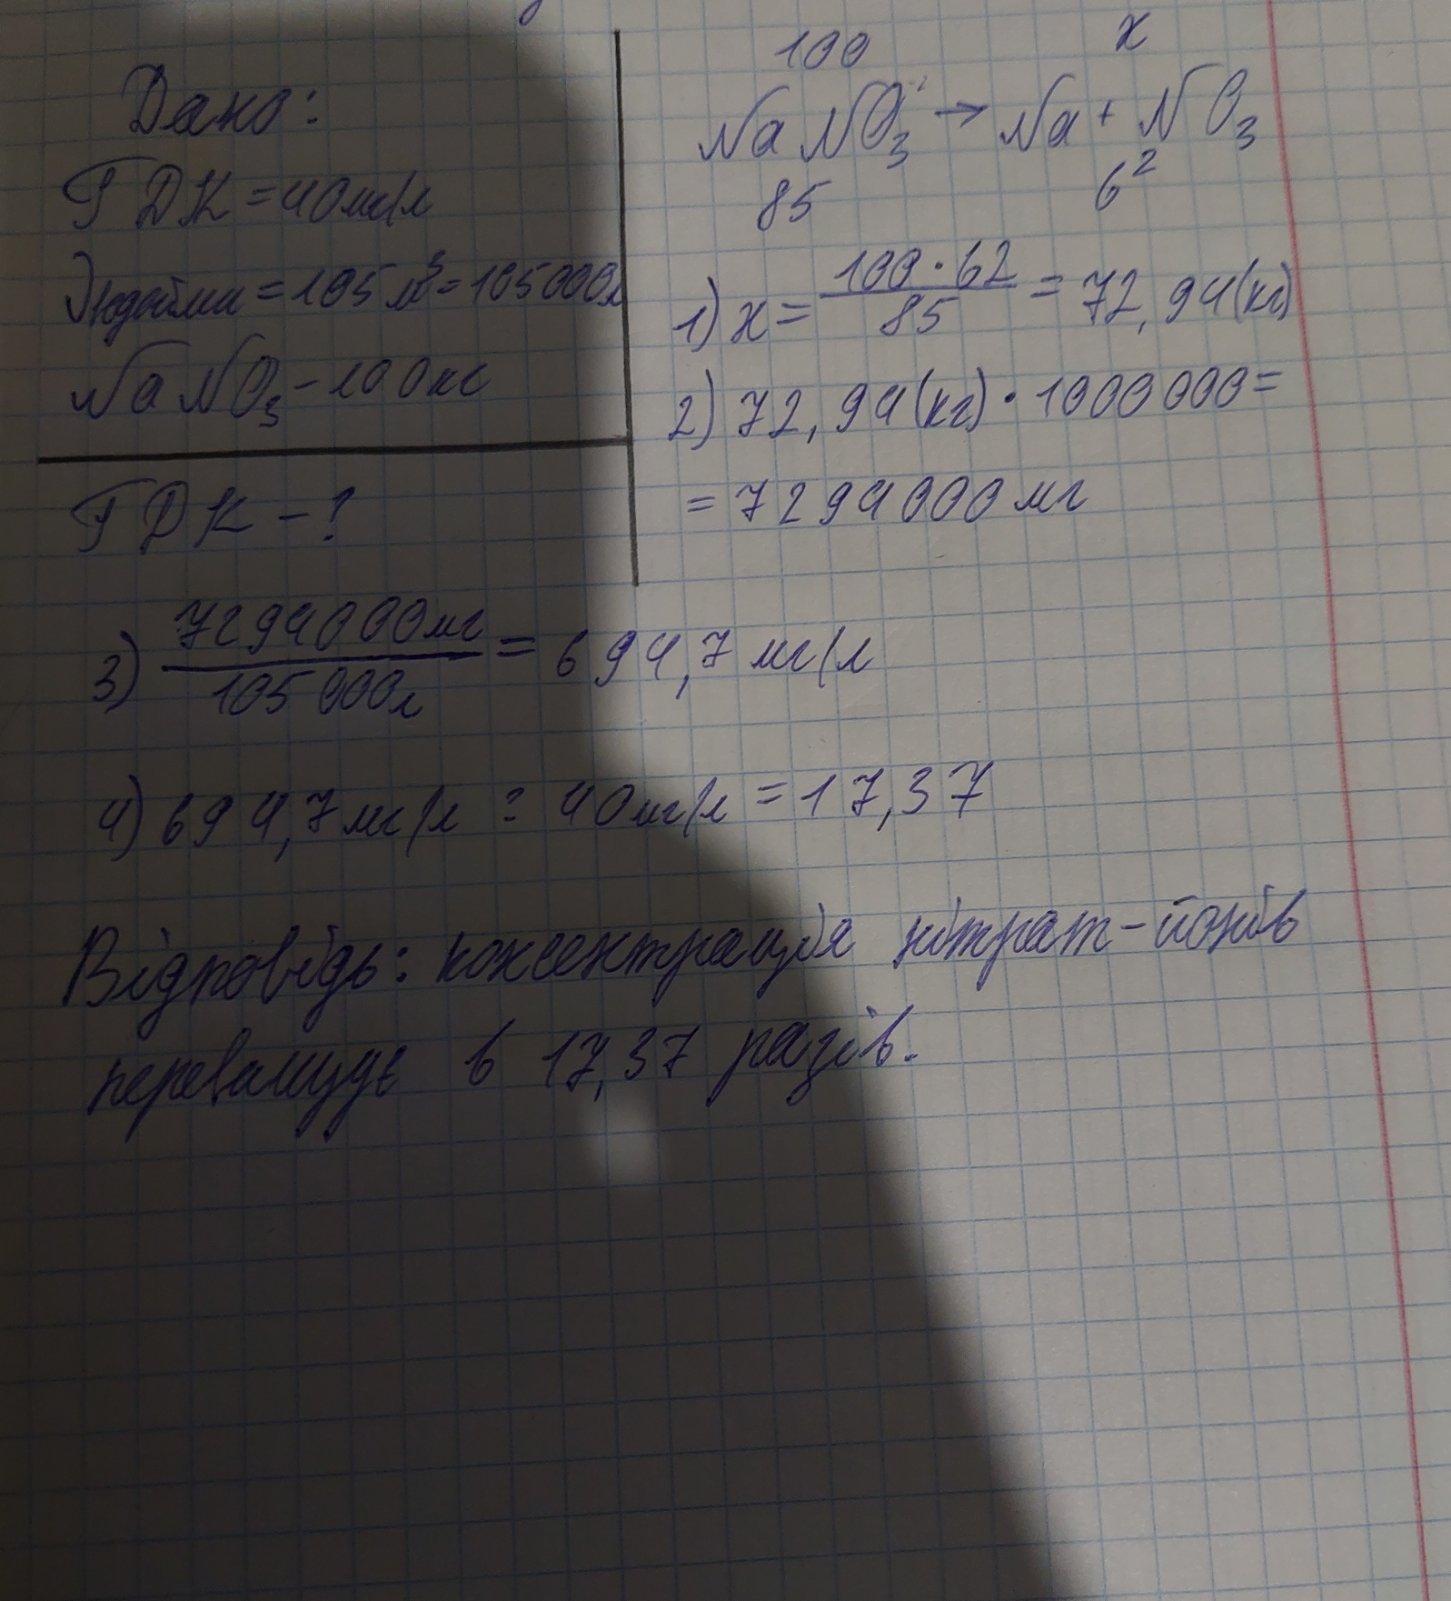 Дано:
ГДК = 40мг/л
Yводойми = 105 м³ = 105000л
NaNO₃ - 100кг
ГДК - ?
100 x
NaNO₃ → Na + NO₃
85 62
1) x = 100·62 / 85 = 72,94(кг)
2) 72,94(кг)·1000000=
= 7294000мг
3) 7294000мг / 105000л = 694,7 мг/л
4) 694,7мг/л : 40мг/л = 17,37
Відповідь: концентрація нітрат-йонів
перевищує в 17,37 разів.